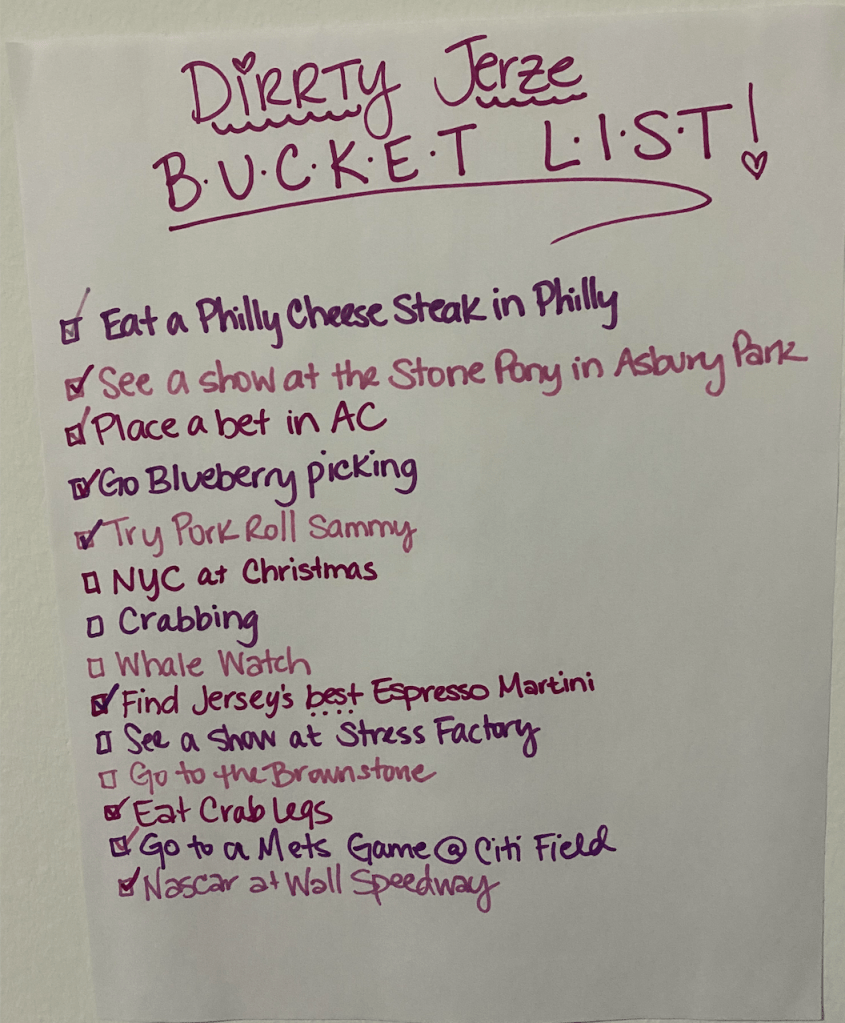 DiRRTy Jerze
B.U.C.K.E.T L.I.S.T!
Eat a Philly Cheese Steak in Philly
See a show at the Stone Pony in Asbury Park
Place a bet in AC
Go Blueberry picking
Try Pork Roll Sammy
NYC at Christmas
Crabbing
Whale Watch
Find Jersey's best Espresso Martini
See a show at Stress Factory
Go to the Brownstone
Eat Crab Legs
Go to a Mets Game @ Citi Field
Nascar at Wall Speedway